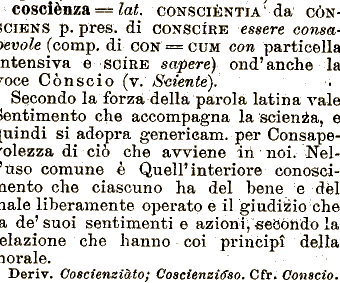 cosciènza = lat. CONSCIÈNTIA da CÒN-
SCIENS p. pres. di CONSCÍRE essere consa-
pevole (comp. di CON = CUM con particella
intensiva e SCÍRE sapere) ond'anche la
voce Cònscio (v. Sciente).
Secondo la forza della parola latina vale
Sentimento che accompagna la scienza, e
quindi si adopra genericam. per Consape-
volezza di ciò che avviene in noi. Nel-
l'uso comune è Quell'interiore conosci-
mento che ciascuno ha del bene e del
male liberamente operato e il giudizio che
fa de' suoi sentimenti e azioni, secondo la
relazione che hanno coi principî della
morale.
Deriv. Coscienziàto; Coscienzióso. Cfr. Conscio.